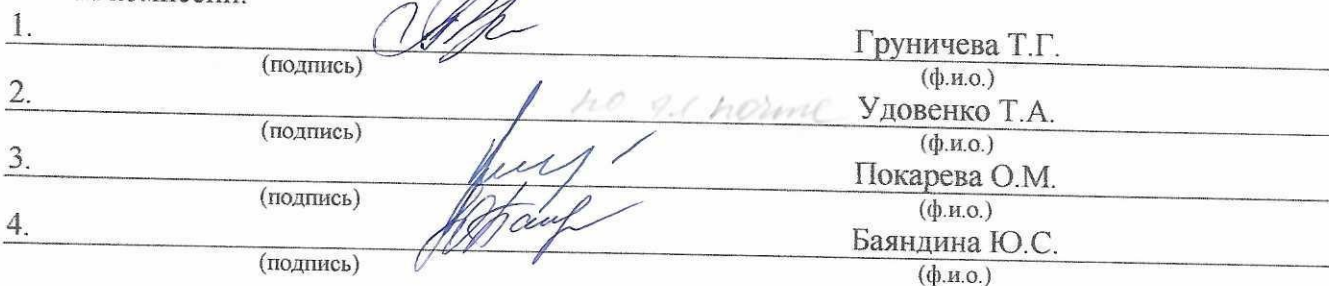 1. Груничева Т.Г.
(подпись) (ф.и.о.)
2. по эл почте Удовенко Т.А.
(подпись) (ф.и.о.)
3. Покарева О.М.
(подпись) (ф.и.о.)
4. Баяндина Ю.С.
(подпись) (ф.и.о.)